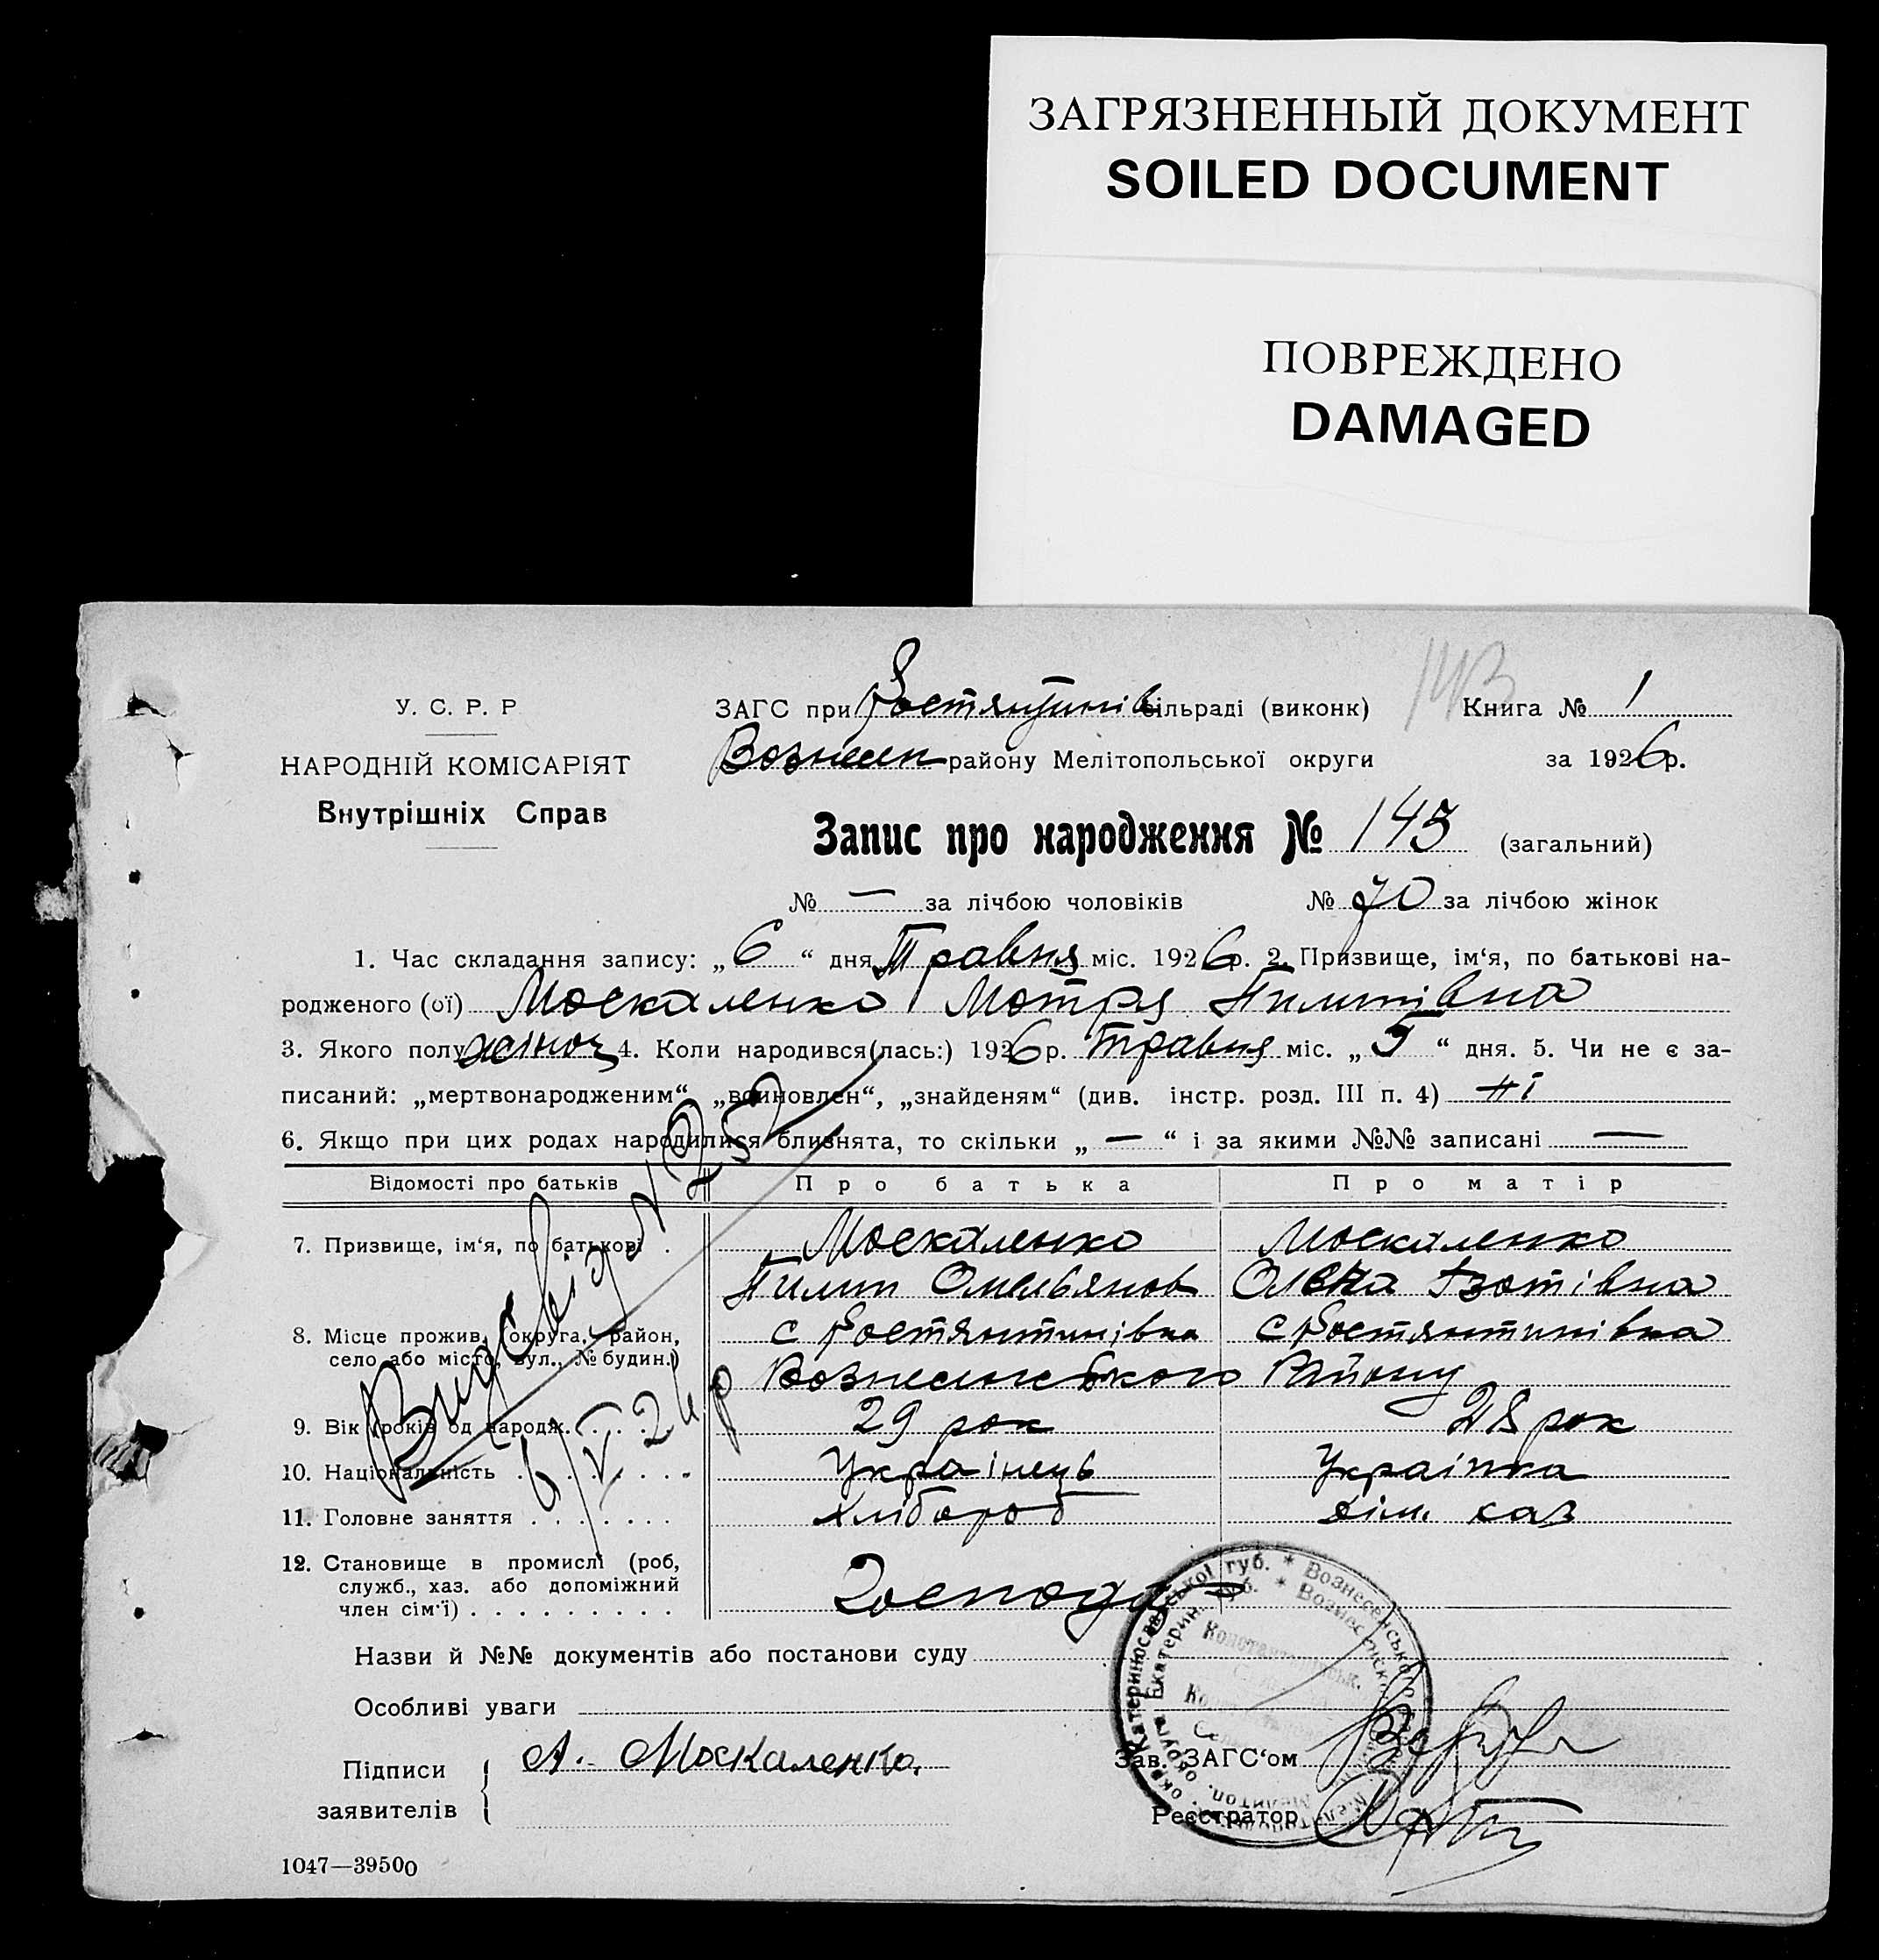 ЗАГРЯЗНЕННЫЙ ДОКУМЕНТ
SOILED DOCUMENT
ПОВРЕЖДЕНО
DAMAGED
143
У. С. Р. Р
НАРОДНІЙ КОМІСАРІЯТ
Внутрішніх Справ
ЗАГС при Костянтинів сільраді (виконк) Книга № 1
Вознесен району Мелітопольської округи за 1926р.
Запис про народження № 143 (загальний)
№ — за лічбою чоловіків № 70 за лічбою жінок
1. Час складання запису: „6“ дня Травня міс. 1926р. 2. Призвище, ім‘я, по батькові на-
родженого (ої) Москаленко Мотря Пилипівна
3. Якого полу жіноч 4. Коли народився(лась:) 1926р. Травня міс. „5“ дня. 5. Чи не є за-
писаний: „мертвонародженим“ „воиновлен“, „знайденям“ (див. інстр. розд. III п. 4) Ні
6. Якщо при цих родах народилися близнята, то скільки „—“ і за якими №№ записані —
Відомості про батьків Про батька Про матір
7. Призвище, ім‘я, по батькові . Москаленко Москаленко
Пилип Омельянов Олена Ізотівна
8. Місце прожив. (округа, район, с Костянтинівка с Костянтинівка
село або місто, вул., № будин.) Вознесенського Району
9. Вік (років од народж. . . . . 29 рок 28 рок
10. Національність . . . . . . . Українець Українка
11. Головне заняття . . . . . . . Хлібороб дім. хаз
12. Становище в промислі (роб,
служб., хаз. або допоміжний
член сім‘ї) . . . . . . . . . Господар
Видсвід № 252
6/V 26 р
Назви й №№ документів або постанови суду
Особливі уваги
Підписи
заявителів
А. Москаленко.
Зав. ЗАГС‘ом
Реєстратор
окр. Катеринославської губ. * Вознесенського
Екатерин. губ. * Вознесенск
1047—39500